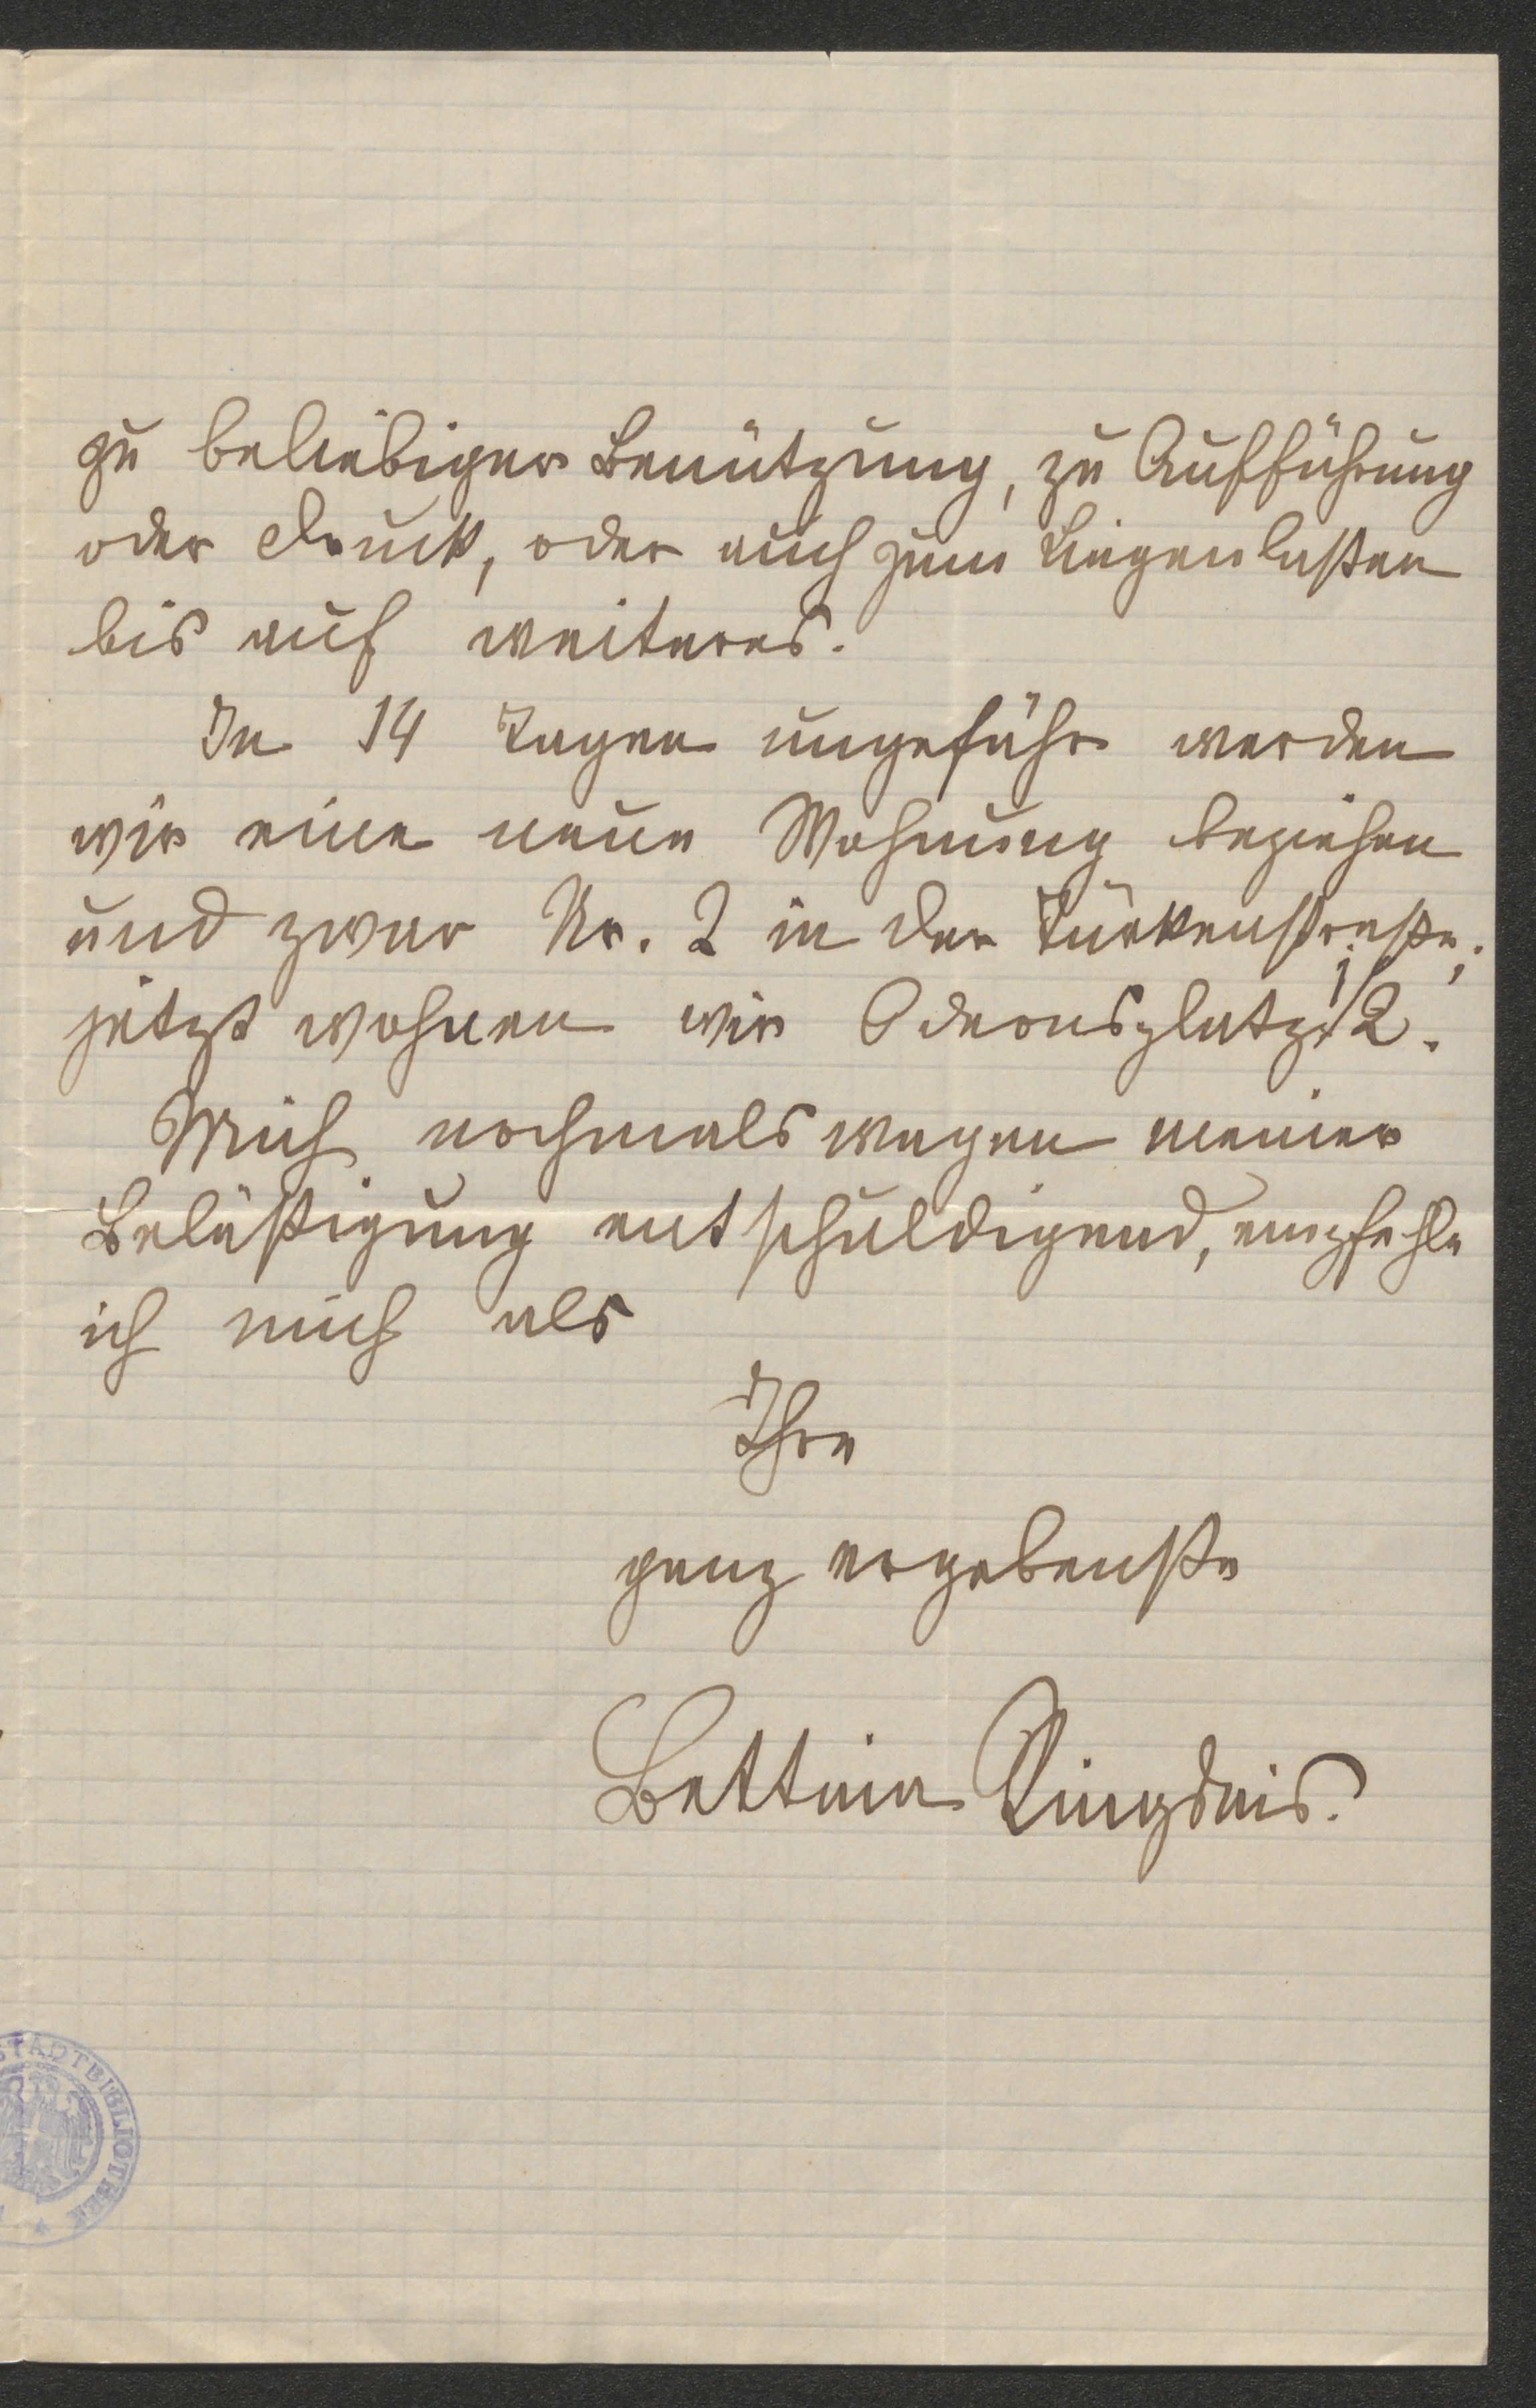 zu beliebiger Benützung, zu Aufführung
oder Druck, oder auch zum Liegenlaßen
bis auf weiteres.
In 14 Tagen ungefähr werden
wir eine neue Wohnung beziehen
und zwar Nr. 2 in der Türkenstraße;
jetzt wohnen wir Odeonsplatz 1/2.
Mich nochmals wegen meiner
Beläßtigung entschuldigend, empfehle
ich mich als
Ihre
ganz ergebenste
Bettina Ringseis.
STADTBIBLIOTHEK